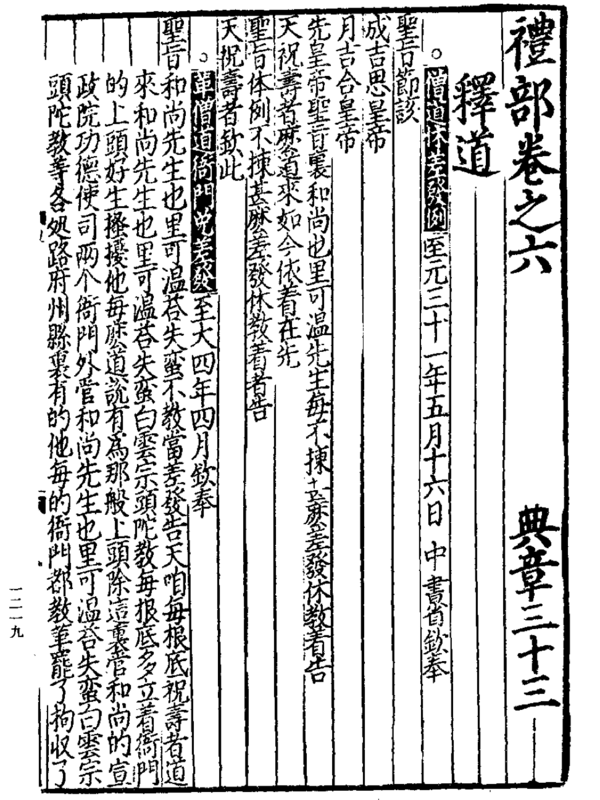 禮部卷之六 典章三十三
釋道
○僧道休差發例至元三十一年五月十六日中書省欽奉
聖旨節該
成吉思皇帝
月吉合皇帝
先皇帝聖旨裏和尚也里可温先生每不揀甚麽差發休教着告
天祝壽者麽道來如今依着在先
聖旨体例不揀甚麽差發休教着者告
天祝壽者欽此
○革僧道衙門免差發至大四年四月欽奉
聖旨和尚先生也里可温荅失蛮不教當差發告天咱每根底祝壽者道
來和尚先生也里可温荅失蛮白雲宗頭陀教每根底多立着衙門
的上頭好生搔擾他每麽道說有爲那般上頭除這裏管和尚的宣
政院功德使司兩个衙門外管和尚先生也里可温荅失蛮白雲宗
頭陀教等各処路府州縣裏有的他每的衙門都教革罷了拘收了
一二一九